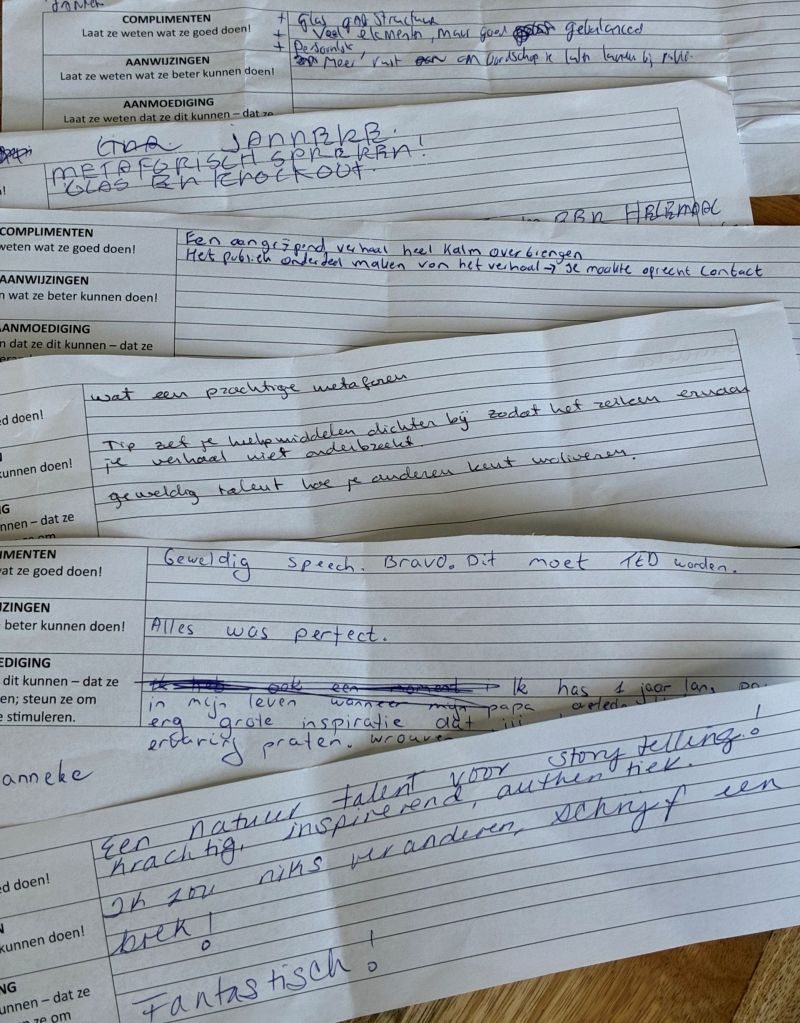 COMPLIMENTEN
Laat ze weten wat ze goed doen!
+ Glas and structuur
+ Veel elementen, maar goed gebalanced
+ Persoonlijk
AANWIJZINGEN
Laat ze weten wat ze beter kunnen doen!
Meer rust om boodschap te laten landen bij
AANMOEDIGING
Laat ze weten dat ze dit kunnen – dat ze
JANNEKE.
METAFORISCH SPREKEN!
GLAS EN KNOCKOUT.
EEN HELEMAAL
COMPLIMENTEN
weten wat ze goed doen!
Een aangrijpend verhaal heel kalm overbrengen
Het publiek onderdeel maken van het verhaal → Je maakte oprecht contact
AANWIJZINGEN
n wat ze beter kunnen doen!
AANMOEDIGING
n dat ze dit kunnen – dat ze
wat een prachtige metaforen
ed doen!
Tip zet je hulpmiddelen dichter bij zodat het
je verhaal niet onderbreekt
kunnen doen!
geweldig talent hoe je anderen kent
NG
nnen – dat ze
IMENTEN
wat ze goed doen!
Geweldig speech. Bravo. Dit moet TED worden.
JZINGEN
beter kunnen doen!
Alles was perfect.
EDIGING
dit kunnen – dat ze
en; steun ze om
e stimuleren.
Ik has 1 jaar
in mijn leven wanneer mijn papa
erg grote inspiratie dat
ervaring praten.
anneke
Een natuur talent voor story telling!
krachtig, inspirerend, authentiek.
ed doen!
Ik zou niks veranderen, schrijf een
boek!
kunnen doen!
Fantastisch!
NG
unnen – dat ze
ze om